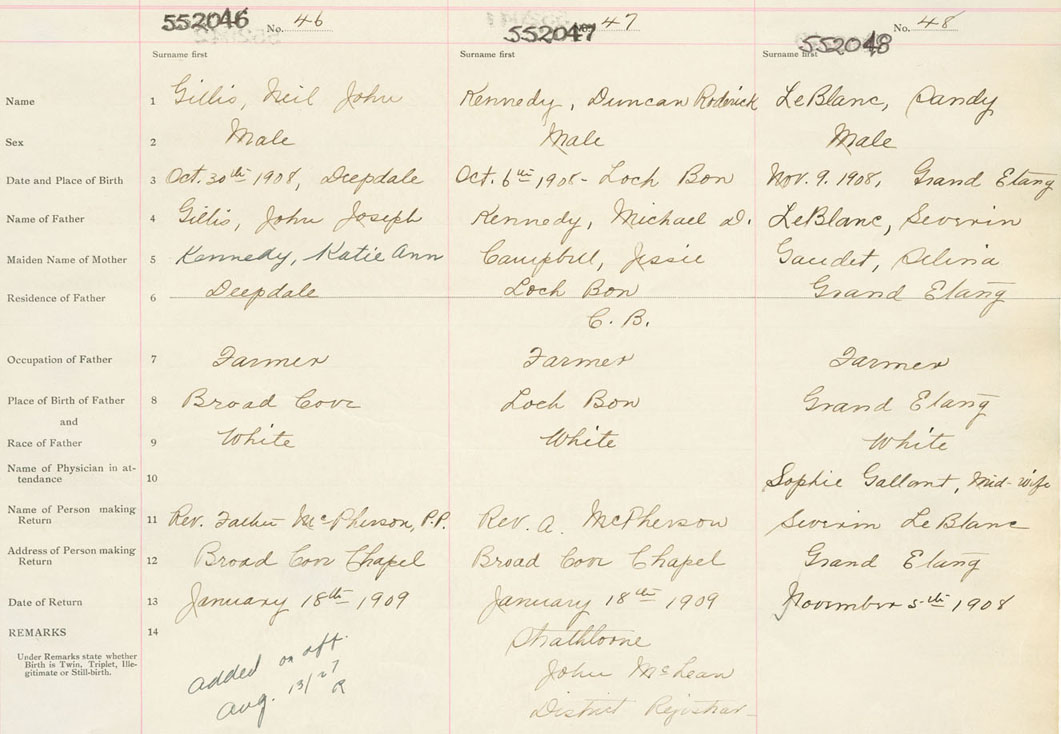 552046 No. 46 552047 No. 47 552048 No. 48
Surname first Surname first Surname first
Name 1 Gillis, Neil John Kennedy, Duncan Roderick LeBlanc, Sandy
Sex 2 Male Male Male
Date and Place of Birth 3 Oct. 30th 1908, Deepdale Oct. 6th 1908 - Loch Bon Nov. 9. 1908, Grand Etang
Name of Father 4 Gillis, John Joseph Kennedy, Michael D. LeBlanc, Severin
Maiden Name of Mother 5 Kennedy, Katie Ann Campbell, Jessie Gaudet, Selina
Residence of Father 6 Deepdale Loch Bon Grand Etang
C. B.
Occupation of Father 7 Farmer Farmer Farmer
Place of Birth of Father 8 Broad Cove Loch Bon Grand Etang
and
Race of Father 9 White White White
Name of Physician in at-
tendance 10 Sophie Gallant, Mid-wife
Name of Person making
Return 11 Rev. Father McPherson, P.P. Rev. A. McPherson Severin LeBlanc
Address of Person making
Return 12 Broad Cove Chapel Broad Cove Chapel Grand Etang
Date of Return 13 January 18th 1909 January 18th 1909 November 5th 1908
REMARKS 14 Strathlorne
Under Remarks state whether
Birth is Twin, Triplet, Ille-
gitimate or Still-birth.
added on aff. John McLean
Aug. 13/27 District Registrar
R